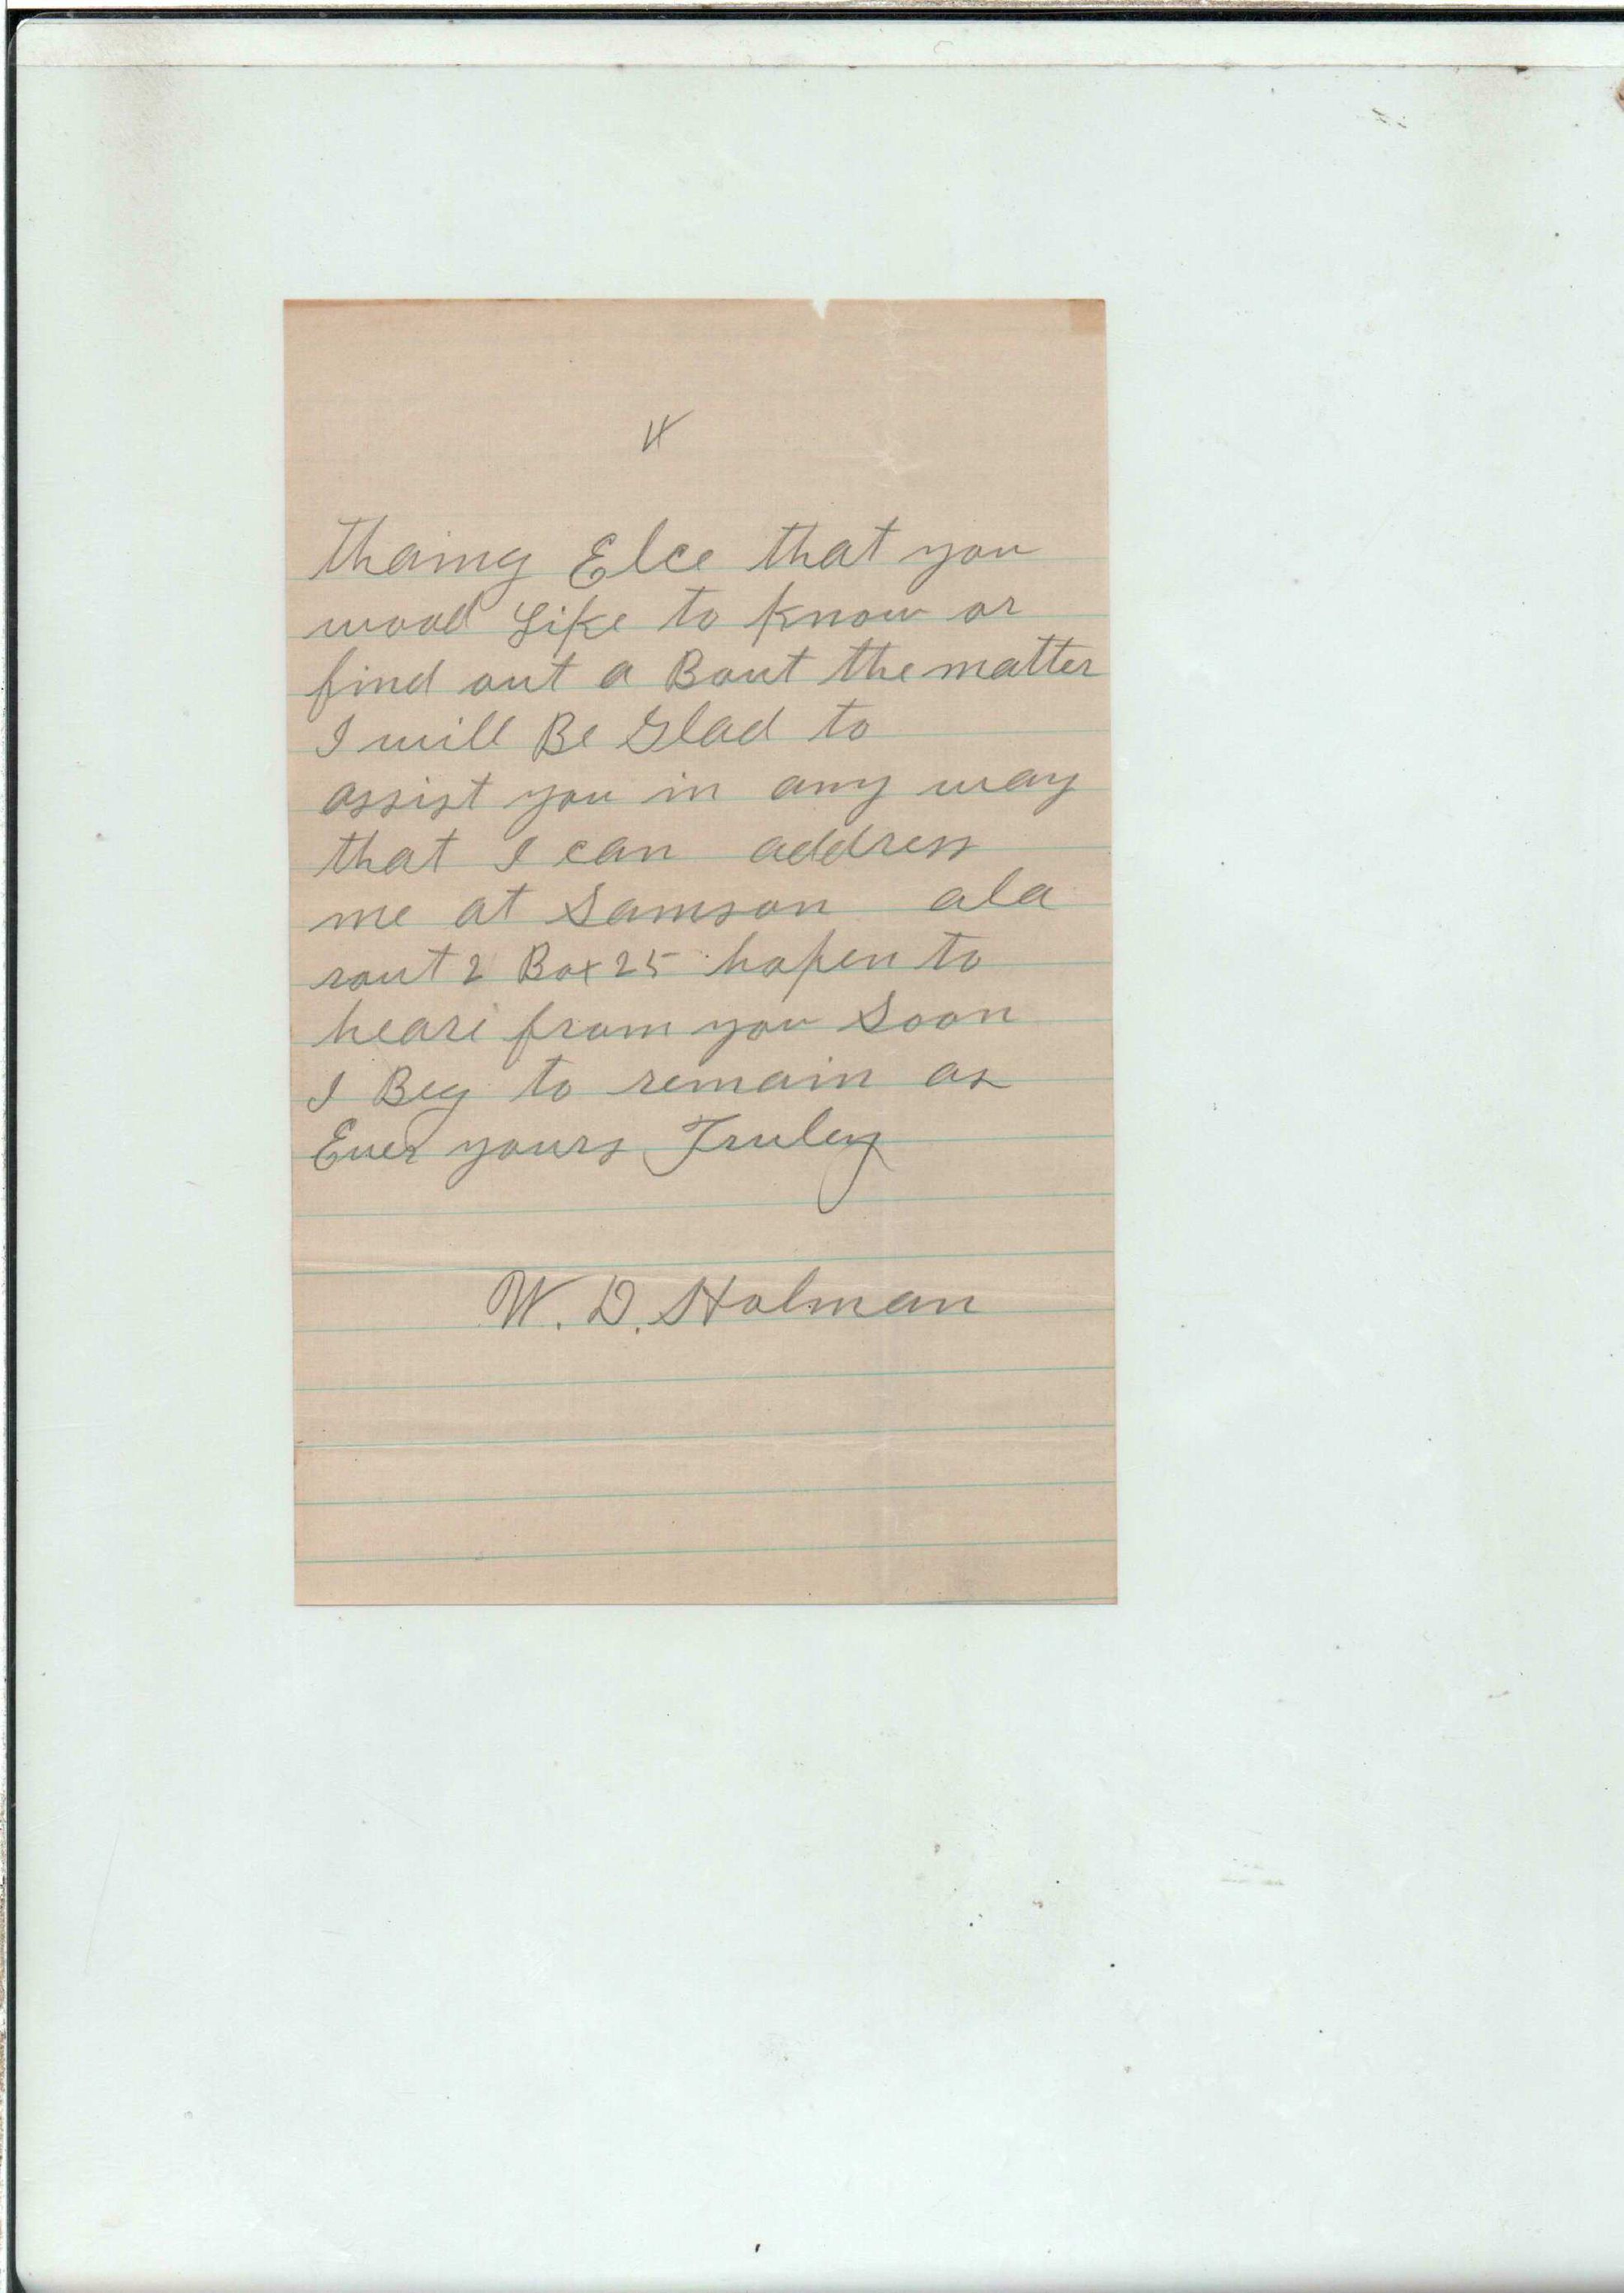 4
thaing Else that you
wood Like to know or
find out a Bout the matter
I will Be Glad to
assist you in any way
that I can address
me at Samson ala
rout 2 Box 25 hopen to
heare from you Soon
I Beg to remain as
Ever yours Truley
W. D. Holman